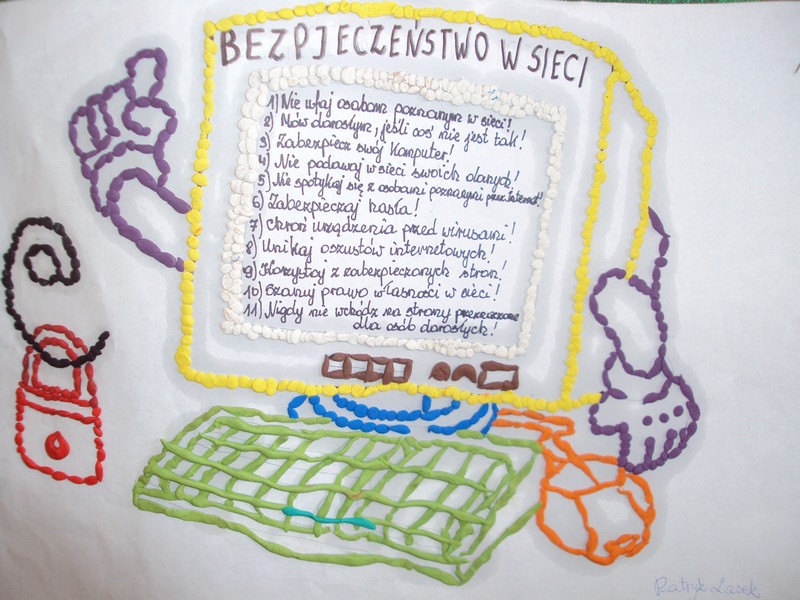 BEZPIECZEŃSTWO W SIECI
1) Nie ufaj osobom poznanym w sieci!
2) Mów dorosłym, jeśli coś nie jest tak!
3) Zabezpiecz swój komputer!
4) Nie podawaj w sieci swoich danych!
5) Nie spotykaj się z osobami poznanymi przez Internet!
6) Zabezpieczaj hasła!
7) Chroń urządzenia przed wirusami!
8) Unikaj oszustów internetowych!
9) Korzystaj z zabezpieczonych stron!
10) Szanuj prawo własności w sieci!
11) Nigdy nie wchódź na strony przeznaczone
dla osób dorosłych!
Patryk Lasek